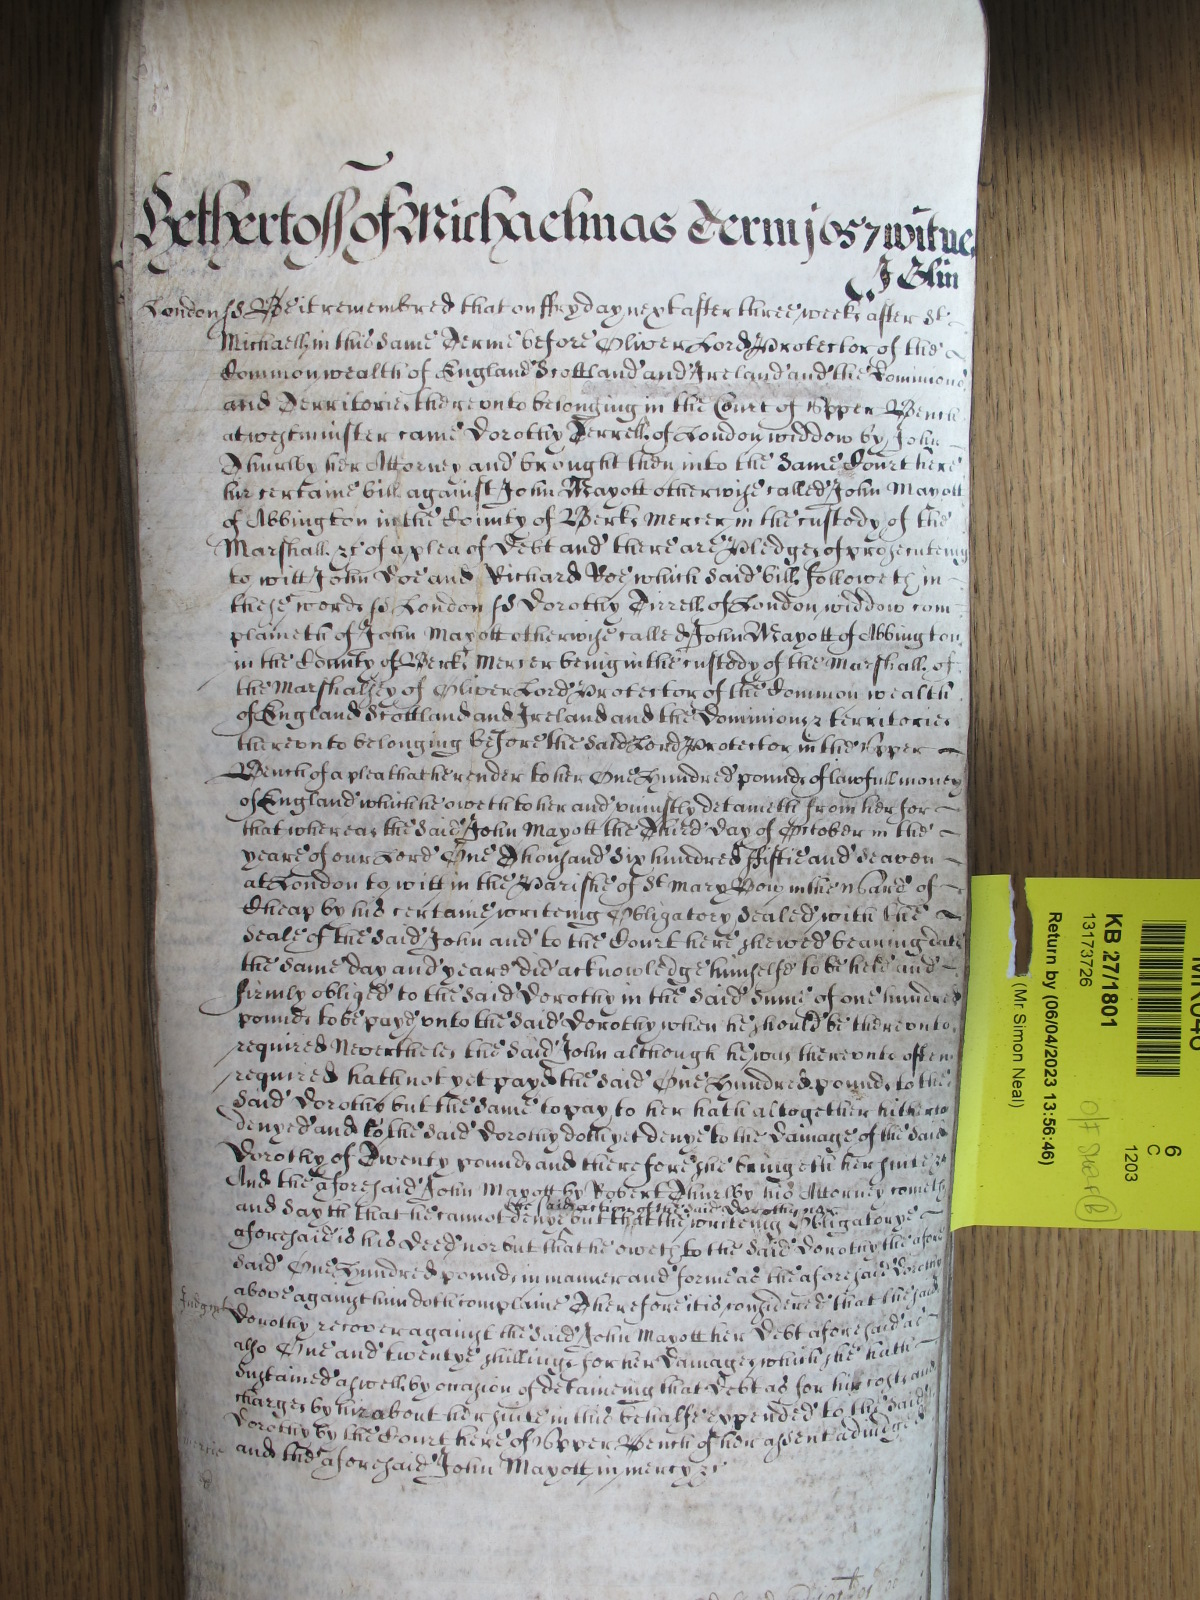 Yet hertoff of Michaelmas Terme 1657 witnes
J Glin
London ss Be it remembred that on ffryday next after three weekes after St
Michaell in this same Terme before Oliver Lord Protector of the
Commonwealth of England Scottland and Ireland and the Dominions
and Territories therevnto belonging in the Court of Vpper Bench
at westminster came Dorothy Terrell of London widdow by John
Thurlby her Attorney and brought then into the same Court here
hir certaine bill against John Mayott otherwise called John Mayott
of Abbington in the County of Berks Mercer in the custody of the
Marshall &c of a plea of Debt and there are Pledges of prosecuteing
to witt John Doe and Richard Roe which said bill followeth in
these words ss London ss Dorothy Tirrell of London widdow com
plaineth of John Mayott otherwise called John Mayott of Abbington
in the County of Berks Mercer being in the custody of the Marshall of
the Marshallsey of Oliver Lord Protector of the Common wealth
of England Scottland and Ireland and the Dominions & territories
therevnto belonging before the said Lord Protector in the Vpper
Bench of a plea that he render to her One Hundred pounds of lawfull money
of England which he oweth to her and vniustly detaineth from her for
that whereas the said John Mayott the Third day of October in the
yeare of our Lord One Thousand Six hundred ffiftie and seaven
at London to witt in the Parishe of St Mary Bow in the Ward of
Cheap by his certaine writeing Obligatory sealed with the
seale of the said John and to the Court here shewed beareing date
the same day and yeare did acknowledge himselfe to be held and
firmly obliged to the said Dorothy in the said sume of one hundred
pounds to be payd vnto the said Dorothy when he should be therevnto
required Neverthelesse the said John although he was therevnto often
required hath not yet payd the said One Hundred pounds to the
said Dorothy but the same to pay to her hath altogether hitherto
denyed and to the said Dorothy doth yet denye to the Damage of the said
Dorothy of Twenty pounds and therefore she bringeth her suite &c
And the aforesaid John Mayott by Robert Thurlby his Attorney cometh
the said action of the said Dorothy nor
and sayth that he cannot denye but that the writeing Obligatorye
aforesaid is his deed nor but that he oweth to the said Dorothy the afore
said One Hundred pounds in manner and forme as the aforesaid Dorothy
above against him doth complaine Therefore it is considered that the said
Judgmt
Dorothy recover against the said John Mayott her Debt aforesaid as
also One and twentye shillings for her Damages which she hath
sustained aswell by occasion of detaineing that Debt as for hir costs and
charges by hir about her suite in this behalfe expended to the said
Dorothy by the Court here of Vpper Bench of her assent adiudged
mercie
and the aforesaid John Mayott in mercy &c
6
C
1203
KB 27/1801
13173726
Return by (06/04/2023 13:56:46)
(Mr Simon Neal)